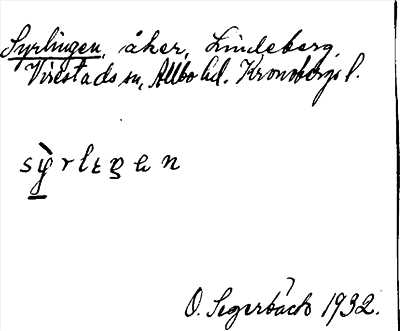 Syrlingen, åker, Lindeberg,
Virestads sn, Allbo hd. Kronobergs l.
sỳ̱rlıŋən
O. Segerbäck 1932.